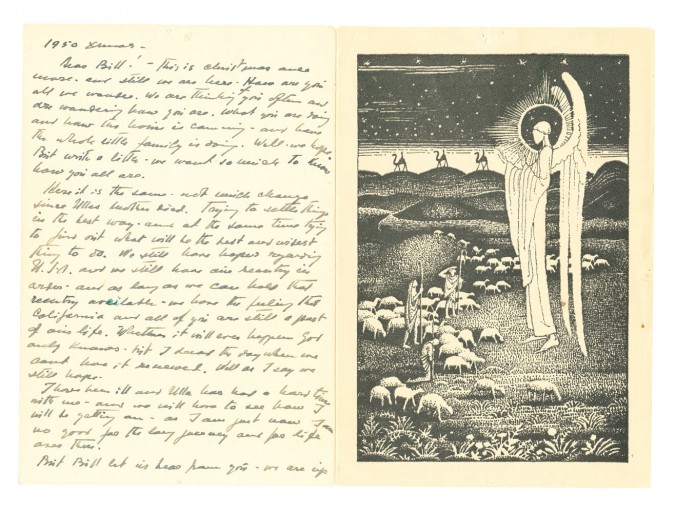 1950 Xmas -
Dear Bill! - This is christmas once
more - and still we are here - How are you
all we wonder. We are thinking of you often and
are wondering how you are. What you are doing
and how the house is coming - and how
the whole little family is doing. Well - we hope.
But write a little - we want so much to know
how you all are.
Here it is the same - not much change
since Ullas mother died. Trying to settle things
in the best way - and at the same time trying
to find out what will be the best and wisest
thing to do. We still have hopes regarding
U.S.A. and we still have our reentry in
order - and as long as we can hold that
reentry available - we have the feeling that
California and all of you are still a part
of our life. Whether it will ever happen God
only knows - but I dread the day when we
cant have it renewed. Well as I say we
still hope.
I have been ill and Ulla has had a hard time
with me - and we will have to see how I
will be getting on - as I am just now I am
no good for the long journey and for life
over there.
But Bill let us hear from you - we are